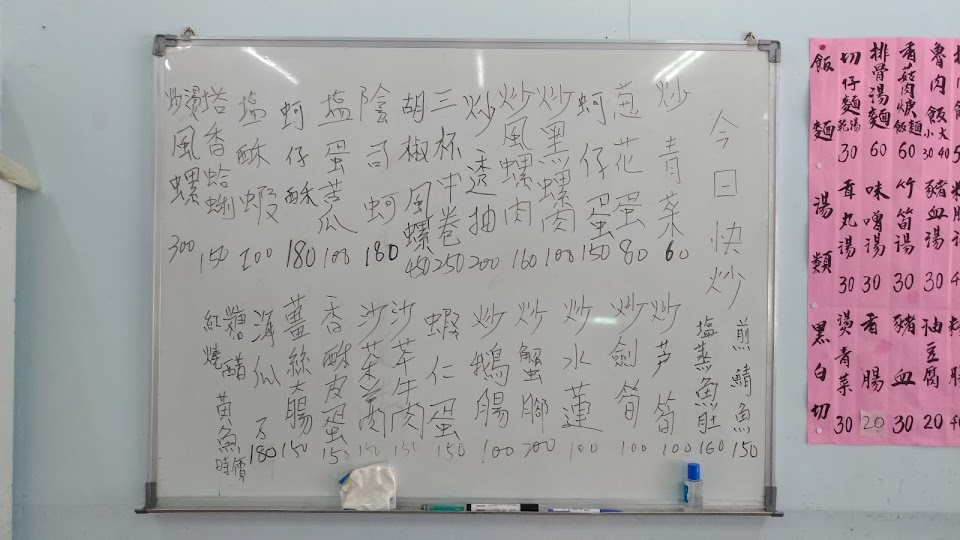 今日快炒
炒青菜 60
蔥花蛋 80
蚵仔蛋 150
炒黑螺肉 100
炒風螺肉 160
炒透抽 200
三杯中卷 250
胡椒風螺 450
陰司蚵 180
塩蛋苦瓜 100
蚵仔酥 180
塩酥蝦 200
塔香蛤蜊 150
炒湯風螺 300
煎鯖魚 150
塩蒸魚肚 160
炒芦筍 100
炒劍筍 100
炒水蓮 100
炒蟹腳 200
炒鵝腸 100
蝦仁蛋 150
沙茶牛肉 150
沙茶羊肉 150
香酥皮蛋 150
薑絲大腸 150
海瓜子 180
糖醋
紅燒
黃魚 時價
飯 麵
切仔麵 乾湯 30
排骨湯麵 60
香菇肉焿 飯麵 60
魯肉飯 小30 大40
湯類
貢丸湯 30
味噌湯 30
竹筍湯 30
豬血湯 30
黑白切
燙青菜 30
香腸 20
豬血 30
油豆腐 20